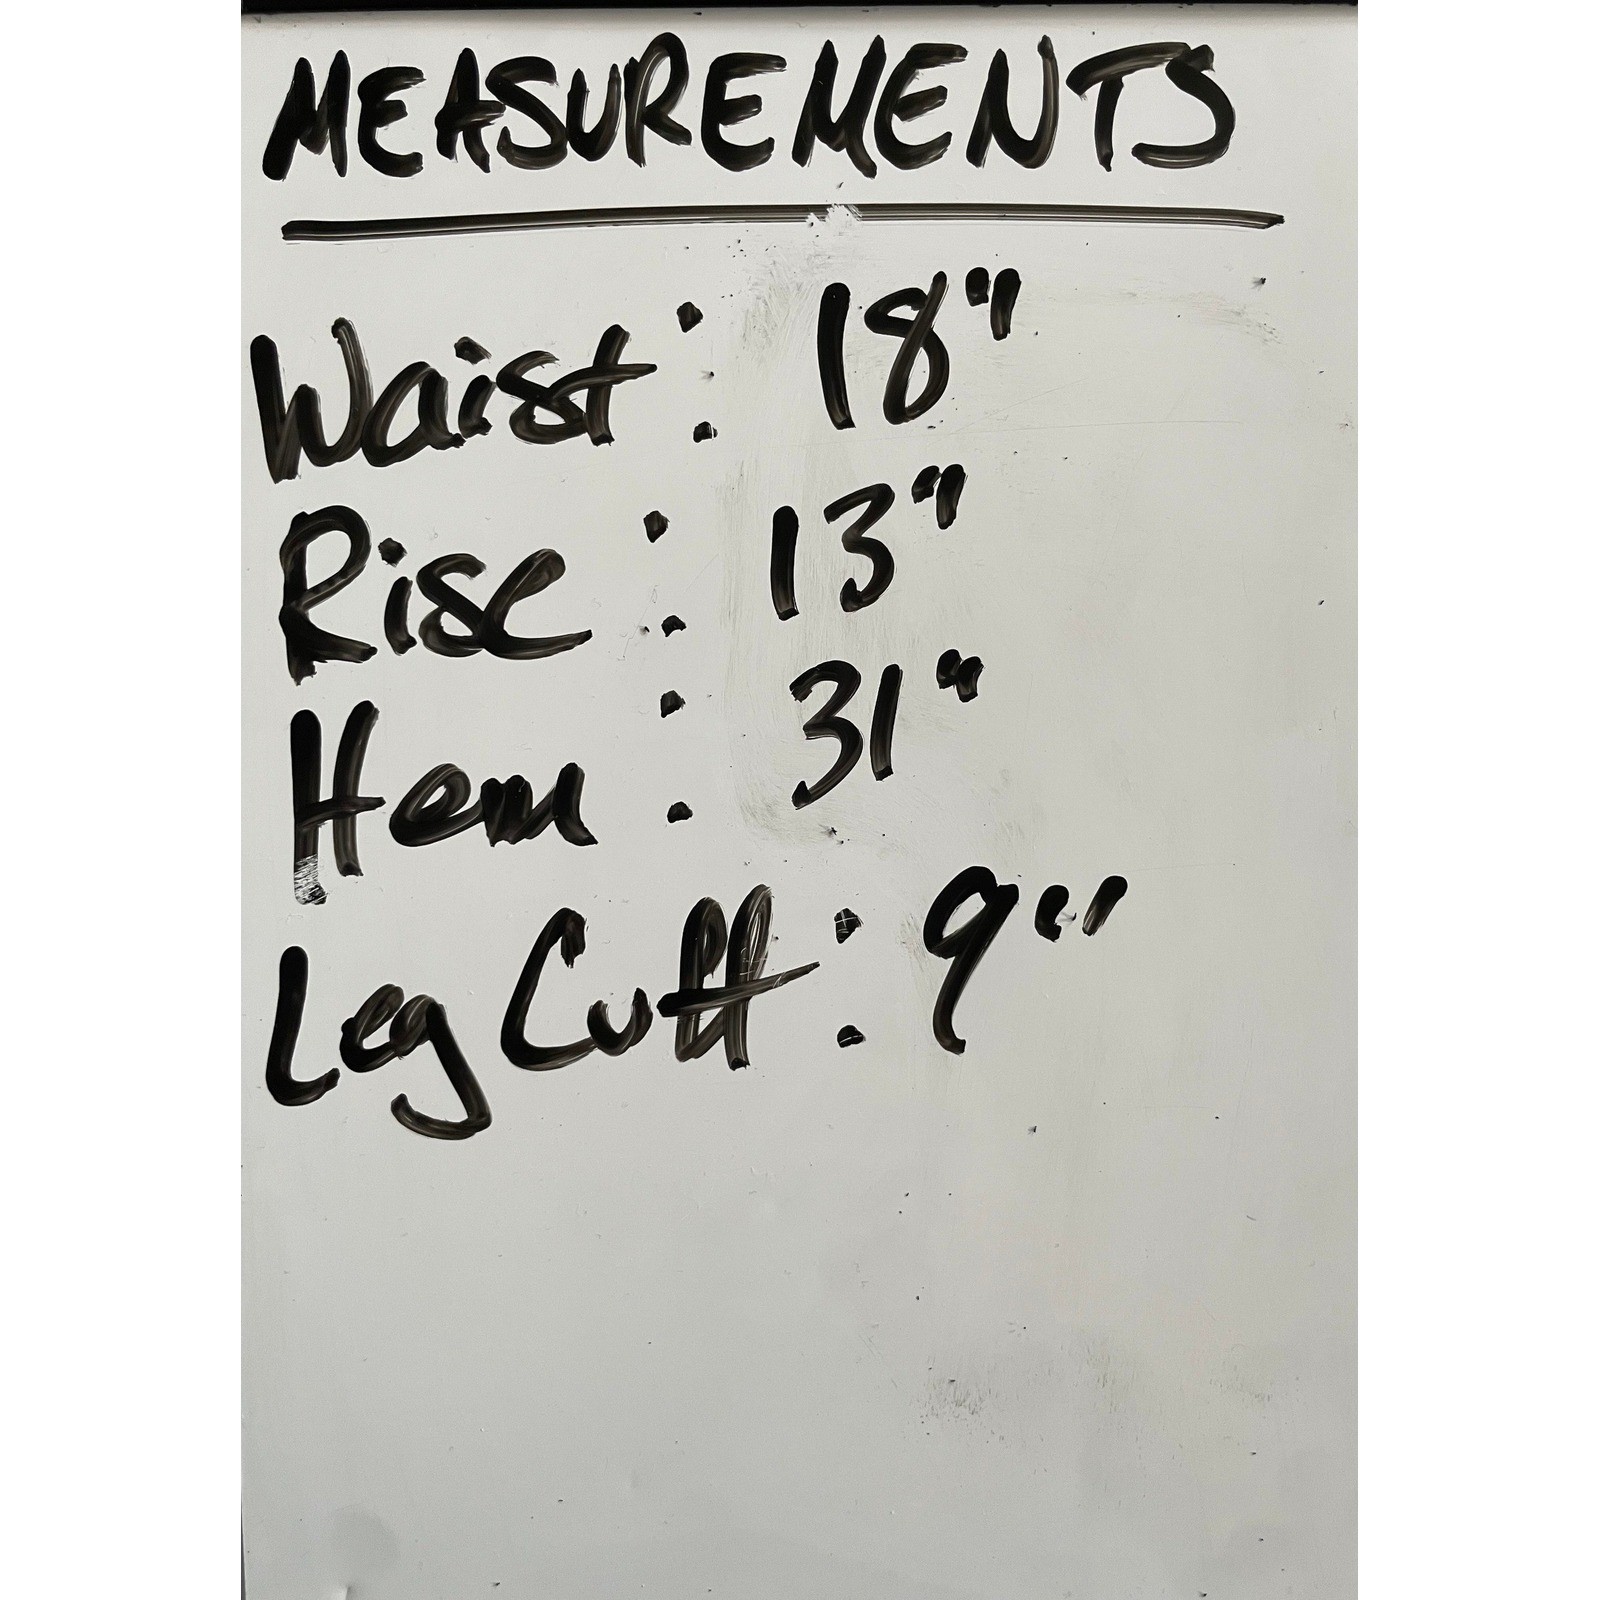 MEASUREMENTS
Waist: 18"
Rise: 13"
Hem: 31"
Leg Cuff: 9"